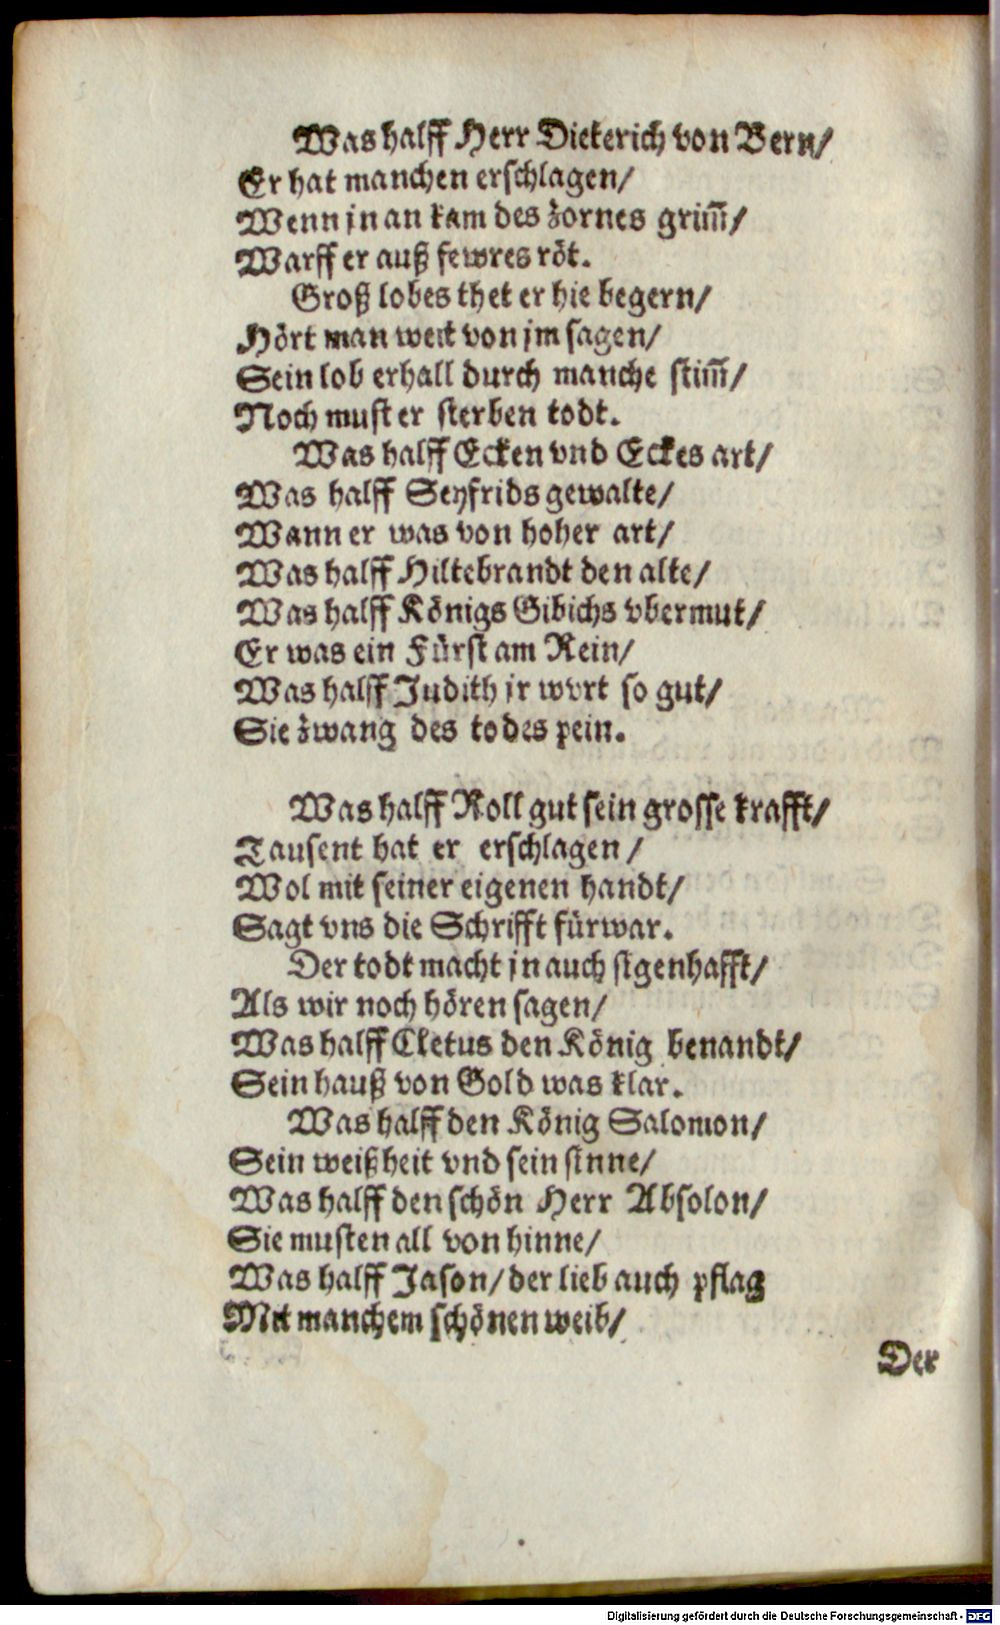 Was halff Herr Dieterich von Bern/
Er hat manchen erschlagen/
Wenn jn an kam des zornes grim̅/
Warff er auß fewres röt.
Groß lobes thet er hie begern/
Hört man weit von jm sagen/
Sein lob erhall durch manche stim̅/
Noch must er sterben todt.
Was halff Ecken vnd Eckes art/
Was halff Seyfrids gewalte/
Wann er was von hoher art/
Was halff Hiltebrandt den alte/
Was halff Königs Gibichs vbermut/
Er was ein Fürst am Rein/
Was halff Judith jr wort so gut/
Sie zwang des todes pein.
Was halff Roll gut sein grosse krafft/
Tausent hat er erschlagen/
Wol mit seiner eigenen handt/
Sagt vns die Schrifft fürwar.
Der todt macht jn auch sigenhafft/
Als wir noch hören sagen/
Was halff Cletus den König benandt/
Sein hauß von Gold was klar.
Was halff den König Salomon/
Sein weißheit vnd sein sinne/
Was halff den schön Herr Absolon/
Sie musten all von hinne/
Was halff Jason/ der lieb auch pflag
Mit manchem schönen weib/
Der
Digitalisierung gefördert durch die Deutsche Forschungsgemeinschaft - DFG